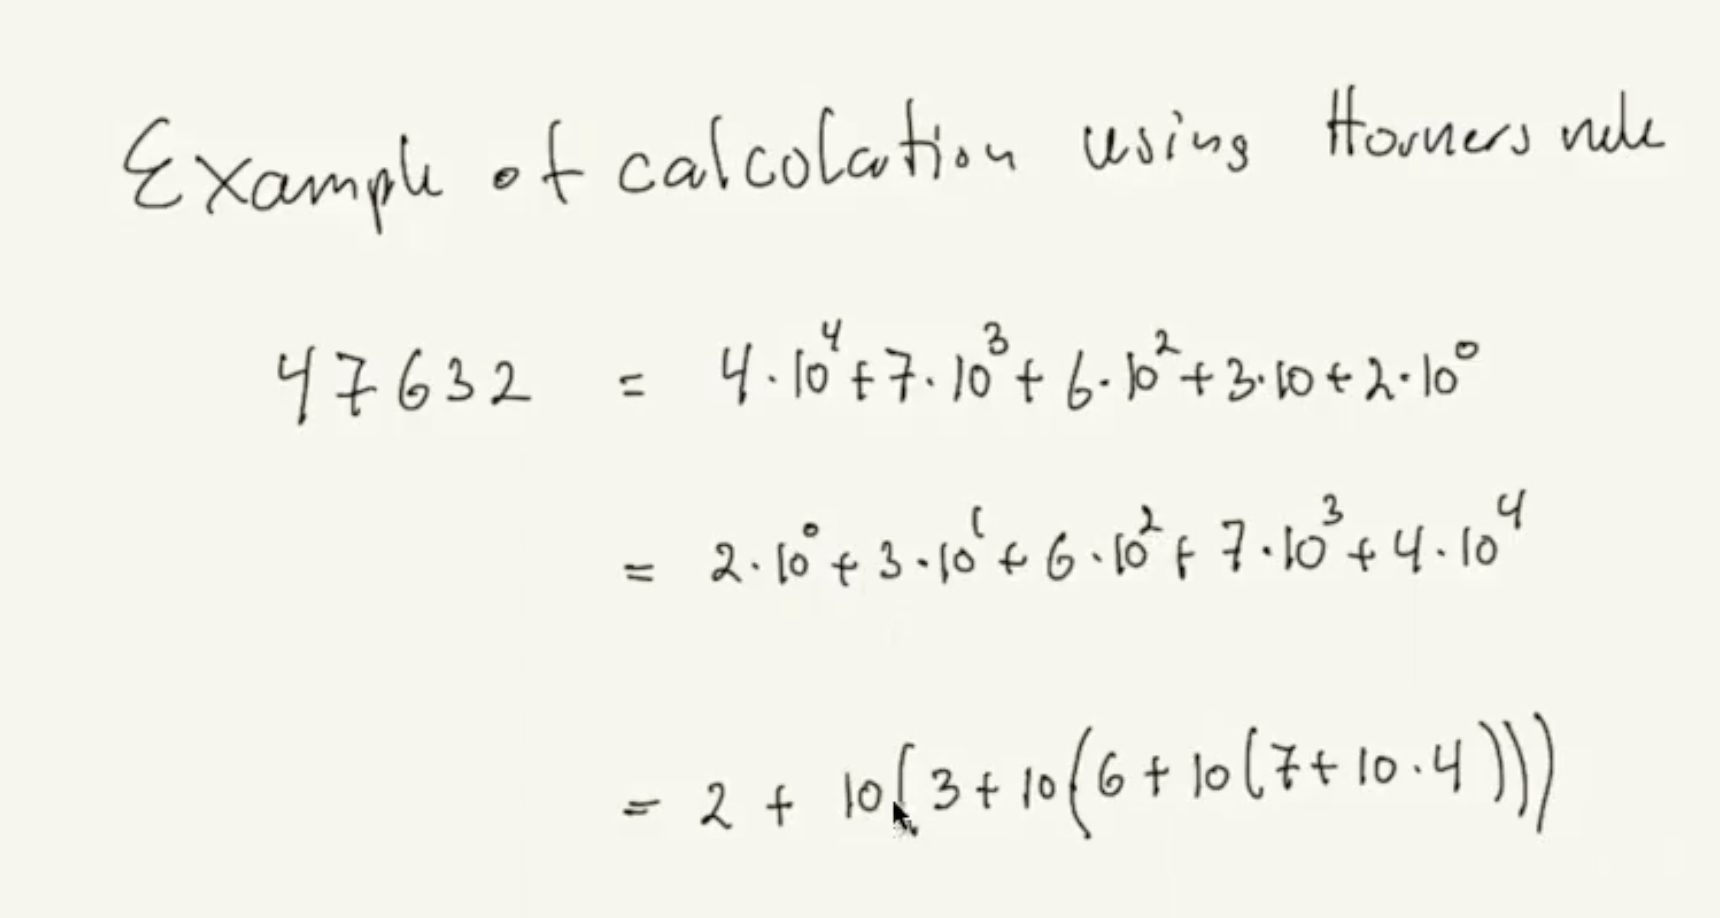 Example of calcolation using Horners rule
47632 = 4·10⁴+7·10³+6·10²+3·10+2·10⁰
= 2·10⁰+3·10¹+6·10²+7·10³+4·10⁴
= 2 + 10(3+10(6+10(7+10·4)))